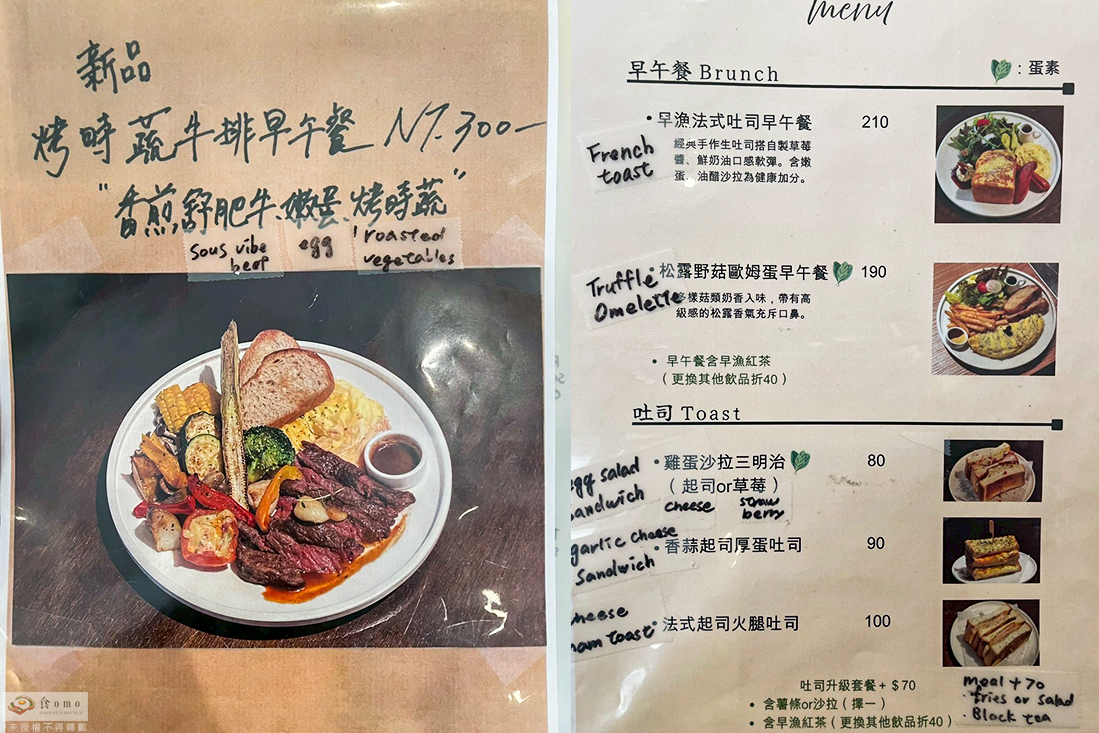 新品
烤時蔬牛排早午餐 NT.300-
"香煎舒肥牛、嫩蛋、烤時蔬"
sous vibe beef
egg
roasted vegetables
食omo
未授權不得轉載
menu
早午餐 Brunch
：蛋素
•早漁法式吐司早午餐 210
French toast
經典手作生吐司搭自製草莓
醬、鮮奶油口感軟彈。含嫩
蛋、油醋沙拉為健康加分。
•松露野菇歐姆蛋早午餐 190
Truffle Omelette
多樣菇類奶香入味，帶有高
級感的松露香氣充斥口鼻。
• 早午餐含早漁紅茶
（更換其他飲品折40）
吐司 Toast
•雞蛋沙拉三明治 80
（起司or草莓）
egg salad
sandwich
cheese
straw
berry
•香蒜起司厚蛋吐司 90
garlic cheese
Sandwich
•法式起司火腿吐司 100
cheese
ham toast
吐司升級套餐+＄70
• 含薯條or沙拉（擇一）
• 含早漁紅茶（更換其他飲品折40）
meal +70
·fries or salad
·Black tea